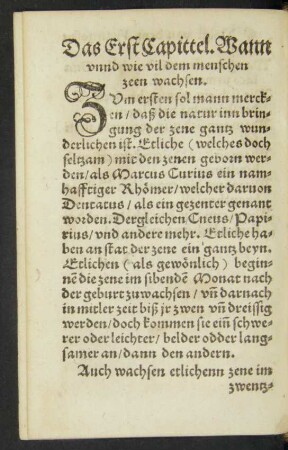 Das Erst Capittel. Wann
vnnd wie vil dem menschen
zeen wachsen.
Zům ersten sol mann merck-
en / daß die natur inn brin-
gung der zene gantz wun-
derlichen ist. Etliche (welches doch
seltzam) mit den zenen geborn wer-
den / als Marcus Curius ein nam-
hafftiger Rhömer / welcher daruon
Dentatus / als ein gezenter genant
worden. Dergleichen Cneus / Papi-
rius / vnd andere mehr. Etliche ha-
ben an stat der zene ein gantz beyn.
Etlichen (als gewönlich) begin-
nē die zene im sibendē Monat nach
der geburt zu wachsen / vn̄ darnach
in mitler zeit biß jr zwen vn̄ dreissig
werden / doch kommen sie ein̄ schwe-
rer oder leichter / belder odder lang-
samer an / dann den andern.
Auch wachsen etlichenn zene im
zwentz-